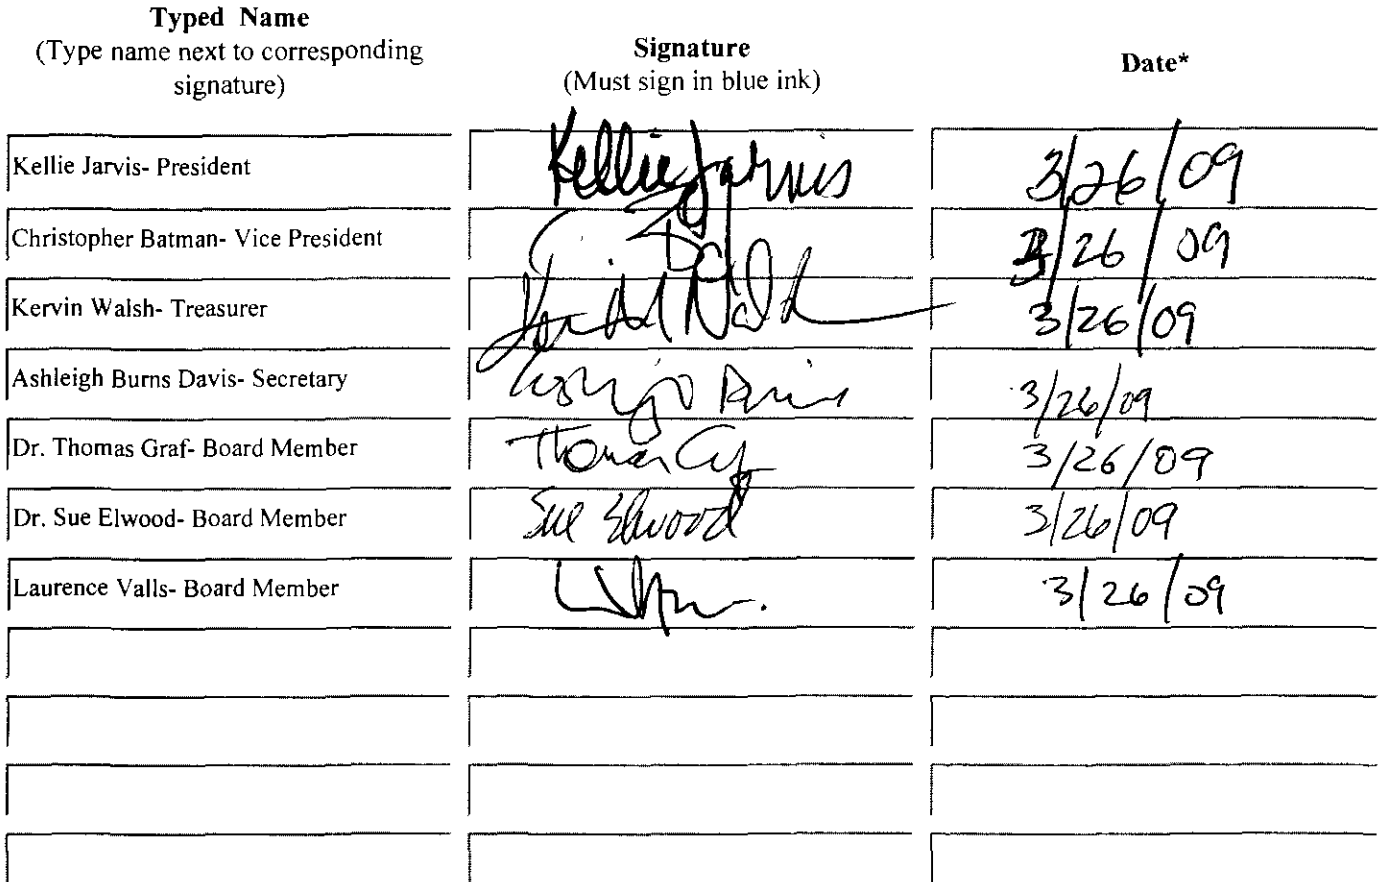 Typed Name
(Type name next to corresponding
signature)
Signature
(Must sign in blue ink)
Date*
Kellie Jarvis- President Kellie Jarvis 3/26/09
Christopher Batman- Vice President 3/26/09
Kervin Walsh- Treasurer 3/26/09
Ashleigh Burns Davis- Secretary 3/26/09
Dr. Thomas Graf- Board Member Thomas 3/26/09
Dr. Sue Elwood- Board Member Sue Elwood 3/26/09
Laurence Valls- Board Member 3/26/09